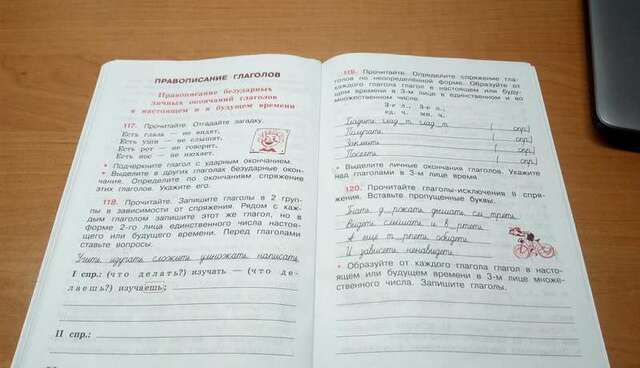 ПРАВОПИСАНИЕ ГЛАГОЛОВ
Правописание безударных
личных окончаний глаголов
в настоящем и в будущем времени
117. Прочитайте. Отгадайте загадку.
Есть глаза — не видят,
Есть уши — не слышит,
Есть рот — не говорит,
Есть нос — не нюхает.
• Подчеркните глагол с ударным окончанием.
• Выделите в других глаголах безударные окон-
чания. Определите по окончаниям спряжение
этих глаголов. Укажите его.
118. Прочитайте. Запишите глаголы в 2 груп-
пы в зависимости от спряжения. Рядом с каж-
дым глаголом запишите этот же глагол, но в
форме 2-го лица единственного числа настоя-
щего или будущего времени. Перед глаголами
ставьте вопросы.
Учить, изучать, сложить, умножать, написать.
I спр.: (что делать?) изучать — (что де-
лаешь?) изучаешь;
II спр.:
119. Прочитайте. Определите спряжение гла-
голов по неопределённой форме. Образуйте от
каждого глагола глагол в настоящем или буду-
щем времени в 3-м лице в единственном и во
множественном числе.
3-е л., 3-е л.,
ед. ч. мн. ч.
( спр.)
( спр.)
( спр.)
( спр.)
• Выделите личные окончания глаголов. Укажите
над глаголами в 3-м лице время.
120. Прочитайте глаголы-исключения в спря-
жении. Вставьте пропущенные буквы.
Гнать, д_ржать, дышать, см_треть,
Видеть, слышать и в_ртеть,
А ещё т_рпеть, обидеть
И зависеть, ненавидеть.
• Образуйте от каждого глагола глагол в насто-
ящем или будущем времени в 3-м лице множе-
ственного числа. Запишите глаголы.